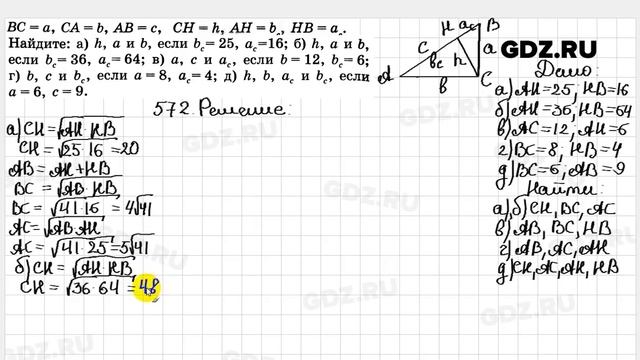 BC = a, CA = b, AB = c, CH = h, AH = b_c, HB = a_c.
Найдите: а) h, a и b, если b_c = 25, a_c = 16; б) h, a и b,
если b_c = 36, a_c = 64; в) a, c и a_c, если b = 12, b_c = 6;
г) b, c и b_c, если a = 8, a_c = 4; д) h, b, a_c и b_c, если
a = 6, c = 9.
572. Решение:
а) CH = √AH·HB
CH = √25·16 = 20
AB = AH + HB
BC = √AB·HB
BC = √41·16 = 4√41
AC = √AB·AH
AC = √41·25 = 5√41
б) CH = √AH·HB
CH = √36·64 = 48
H a_c B
c a
b_c h
A b C
GDZ.RU
Дано:
а) AH = 25, HB = 16
б) AH = 36, HB = 64
в) AC = 12, AH = 6
г) BC = 8; HB = 4
д) BC = 6; AB = 9
Найти:
а), б) CH, BC, AC
в) AB, BC, HB
г) AB, AC, AH
д) CH, AC, AH, HB